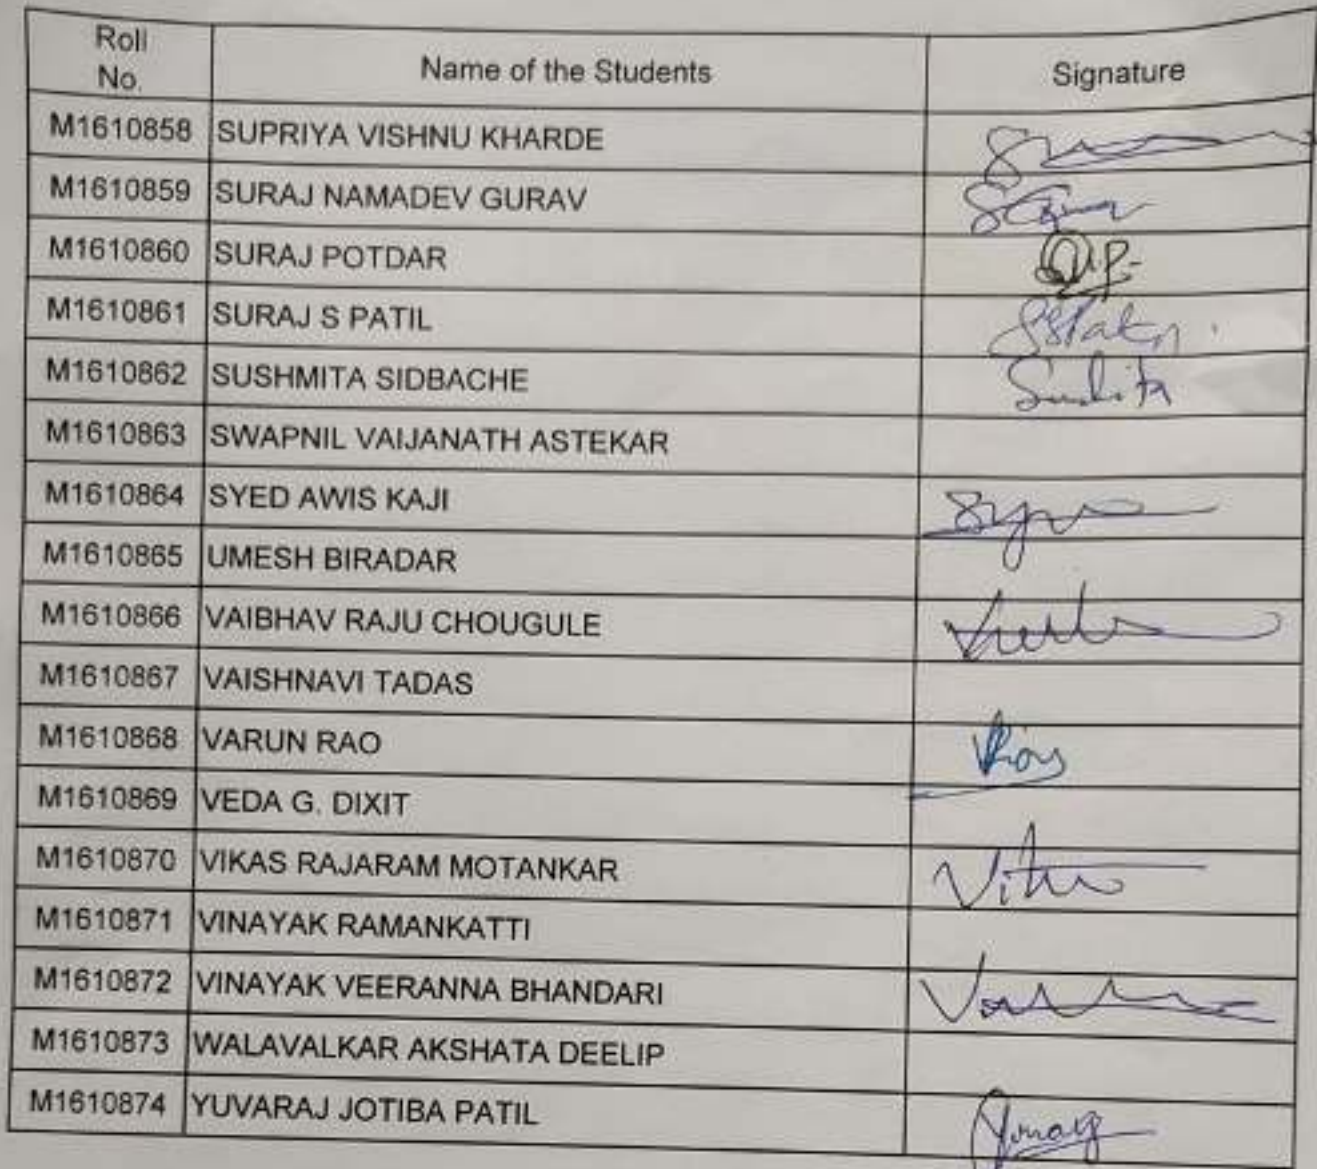 Roll No. Name of the Students Signature
M1610858 SUPRIYA VISHNU KHARDE
M1610859 SURAJ NAMADEV GURAV
M1610860 SURAJ POTDAR
M1610861 SURAJ S PATIL
M1610862 SUSHMITA SIDBACHE
M1610863 SWAPNIL VAIJANATH ASTEKAR
M1610864 SYED AWIS KAJI
M1610865 UMESH BIRADAR
M1610866 VAIBHAV RAJU CHOUGULE
M1610867 VAISHNAVI TADAS
M1610868 VARUN RAO
M1610869 VEDA G. DIXIT
M1610870 VIKAS RAJARAM MOTANKAR
M1610871 VINAYAK RAMANKATTI
M1610872 VINAYAK VEERANNA BHANDARI
M1610873 WALAVALKAR AKSHATA DEELIP
M1610874 YUVARAJ JOTIBA PATIL